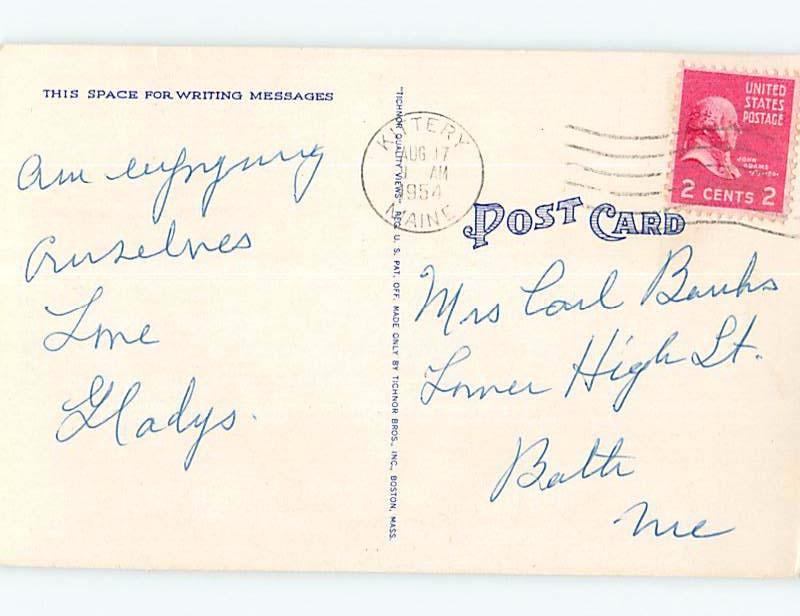 THIS SPACE FOR WRITING MESSAGES
Am enjoying
Ourselves
Love
Gladys.
"TICHNOR QUALITY VIEWS" REG. U. S. PAT. OFF. MADE ONLY BY TICHNOR BROS., INC., BOSTON, MASS.
KITTERY
AUG 17
AM
1954
MAINE
UNITED
STATES
POSTAGE
JOHN
ADAMS
2 CENTS 2
POST CARD
Mrs Carl Banks
Lower High St.
Bath
Me